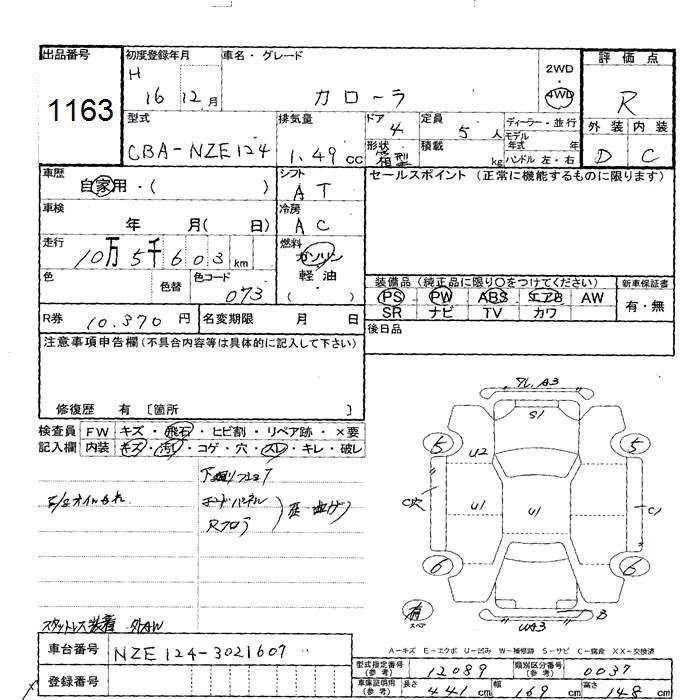 出品番号
1163
初度登録年月
H
16 12月
車名・グレード
カローラ
2WD
・
4WD
評価点
R
外装 内装
D C
型式
CBA-NZE124
排気量
1.49 cc
ドア
4
定員
5 人
ディーラー・並行
モデル
年式 年
形状
箱型
積載
kg
ハンドル 左・右
車歴
自家用・( )
シフト
AT
セールスポイント (正常に機能するものに限ります)
車検
年 月( 日)
冷房
AC
走行
10万5千603 km
燃料
ガソリン
軽油
( )
色
色替
色コード
073
装備品(純正品に限り○をつけてください)
PS PW ABS エアB AW
SR ナビ TV カワ
新車保証書
有・無
R券 10,370 円
名変期限 月 日
後日品
注意事項申告欄(不具合内容等は具体的に記入して下さい)
修復歴 有 〔箇所 〕
検査員
記入欄
FW キズ・飛石・ヒビ割・リペア跡・×要
内装 キズ・汚レ・コゲ・穴・スレ・キレ・破レ
E/Gオイルもれ
Rフロア
スタットレス装着
A3
S1
5 5
U2
U1 U1
C1
6 6
有
スペア
UA3
B
A-キズ E-エクボ U-凹み W-補修跡 S-サビ C-腐食 XX-交換済
車台番号
NZE124-3021607
登録番号
型式指定番号
(参考)
12089
類別区分番号
(参考)
0037
車庫証明用
(参考)
長さ 441 cm
幅 169 cm
高さ 148 cm